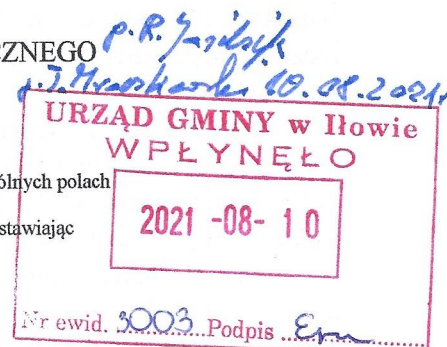 CZNEGO p. R.
10.08.2021r
URZĄD GMINY w Iłowie
WPŁYNĘŁO
ólnych polach
stawiając
2021 -08- 10
Nr ewid. 3003 Podpis